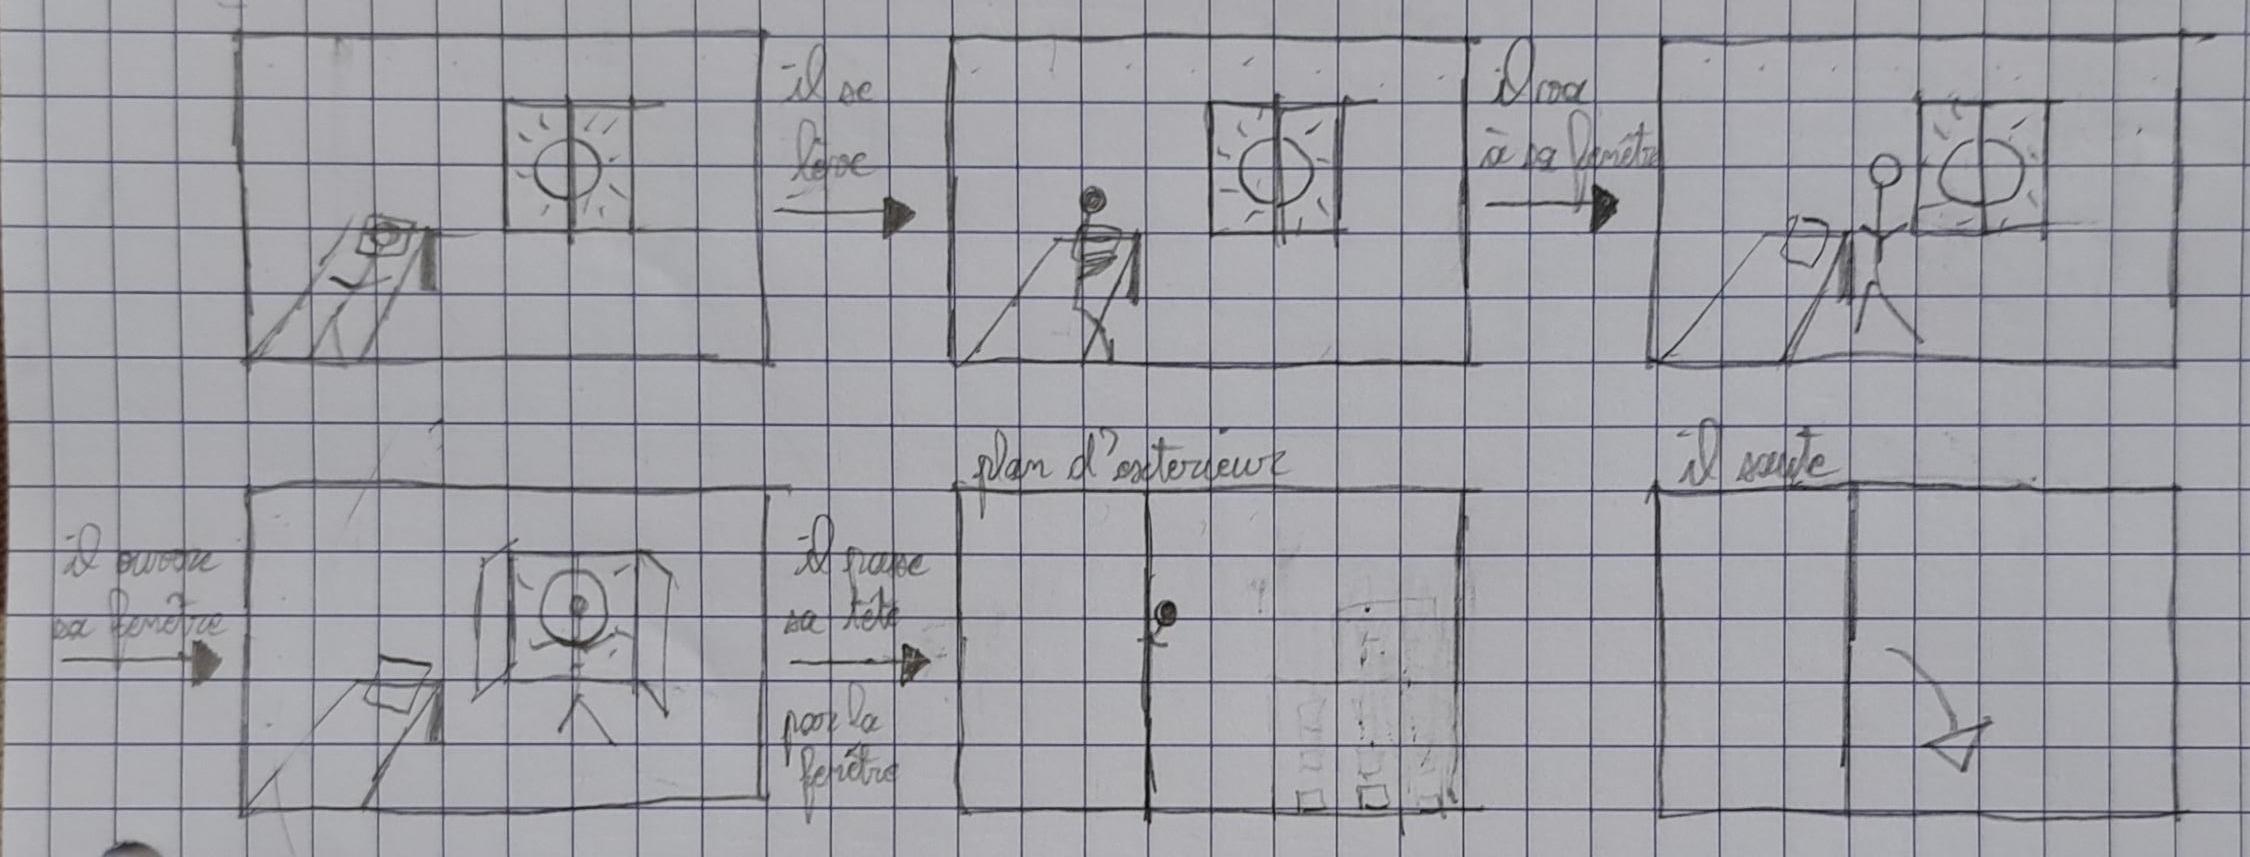 il se
lève
il va
à sa fenêtre
il ouvre
sa fenêtre
il passe
sa tête
par la
fenêtre
plan d'exterieur
il saute